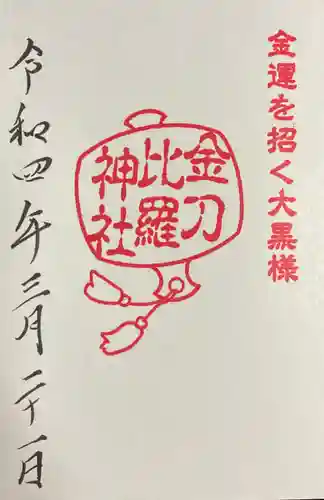 金運を招く大黒様
金刀
比羅
神社
令和四年三月二十一日